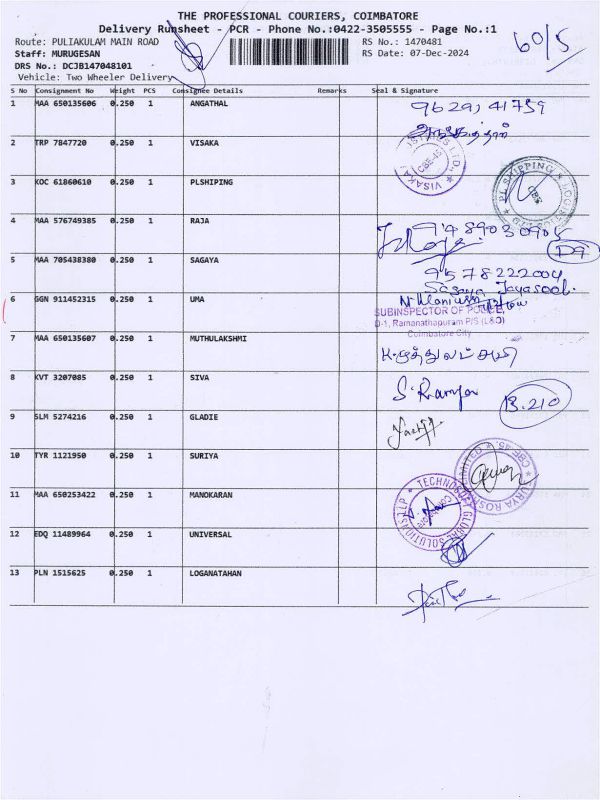 THE PROFESSIONAL COURIERS, COIMBATORE
Delivery Runsheet - PCR - Phone No.:0422-3505555 - Page No.:1
Route: PULIAKULAM MAIN ROAD
RS No.: 1470481
60/5
Staff: MURUGESAN
RS Date: 07-Dec-2024
DRS No.: DCJB147048101
Vehicle: Two Wheeler Delivery
S No Consignment No Weight PCS Consignee Details Remarks Seal & Signature
1 MAA 650135606 0.250 1 ANGATHAL
2 TRP 7847720 0.250 1 VISAKA
VISAKA CBE-45 LTD.
3 KOC 61860610 0.250 1 PLSHIPING
PL SHIPPING & LOGISTICS LTD CBE
4 MAA 576749385 0.250 1 RAJA
D9
5 MAA 705438380 0.250 1 SAGAYA
9578222004
Sagaya Jayaseel.
6 GGN 911452315 0.250 1 UMA
SUBINSPECTOR OF POLICE,
D-1, Ramanathapuram P/S (L&O)
Coimbatore City
7 MAA 650135607 0.250 1 MUTHULAKSHMI
K.முத்துலட்சுமி
8 KVT 3207085 0.250 1 SIVA
S. Ramya
B.210
9 SLM 5274216 0.250 1 GLADIE
10 TYR 1121950 0.250 1 SURIYA
CBE 45
11 MAA 650253422 0.250 1 MANOKARAN
TECHNOSOFT GLOBAL SOLUTIONS LLP
12 EDQ 11489964 0.250 1 UNIVERSAL
13 PLN 1515625 0.250 1 LOGANATAHAN